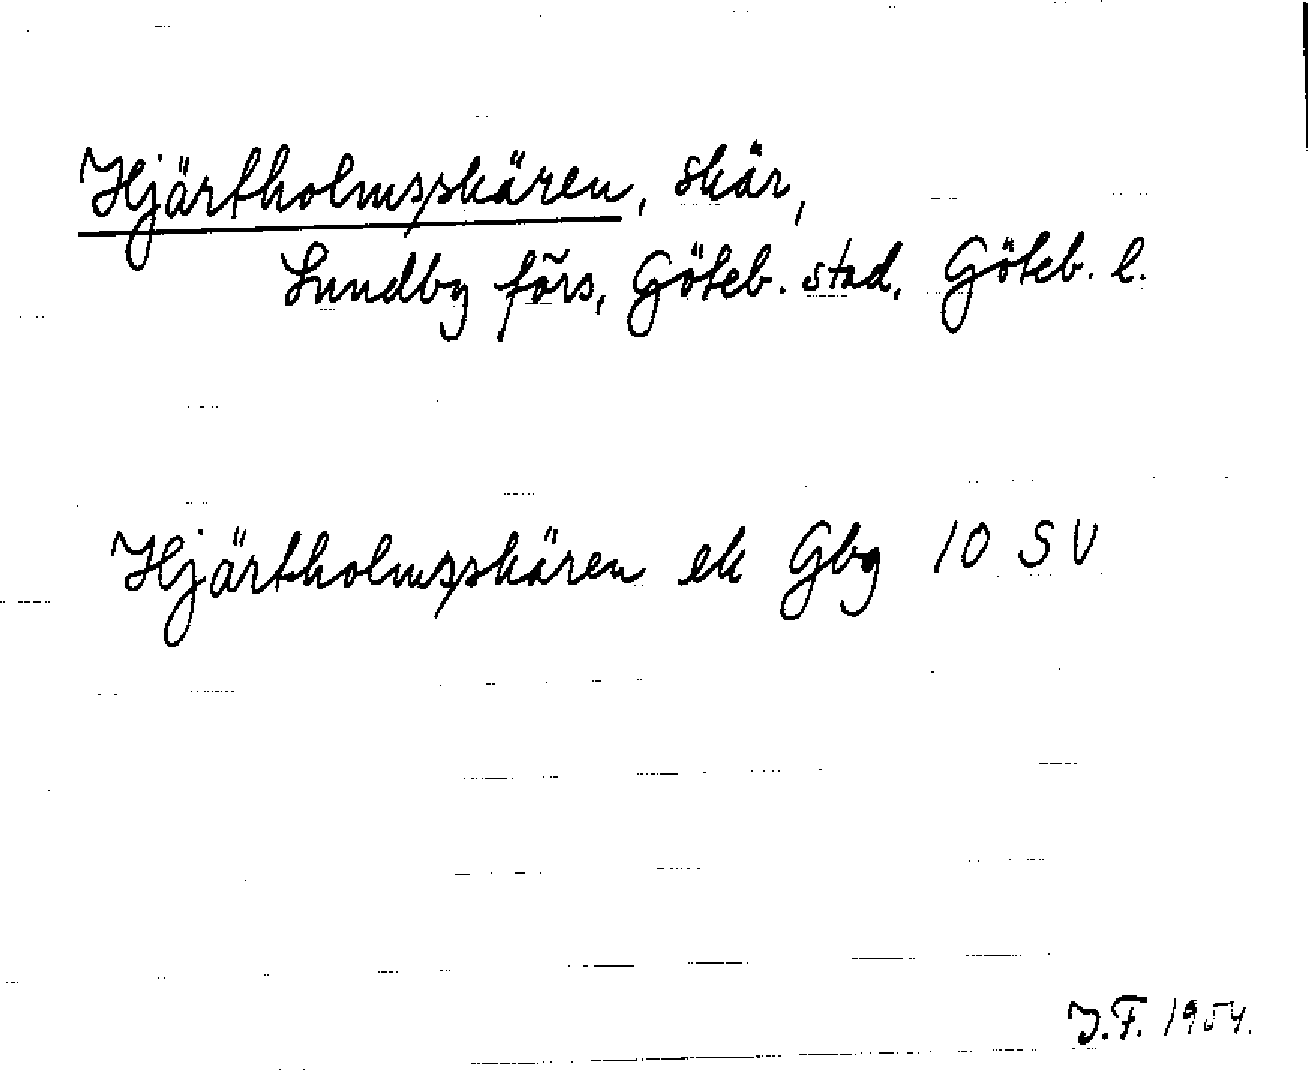 Hjärtholmsskären, skär,
Lundby förs, Göteb. stad, Göteb. l.
Hjärtholmsskären ek Gbg 10 SV
J.F. 1954.